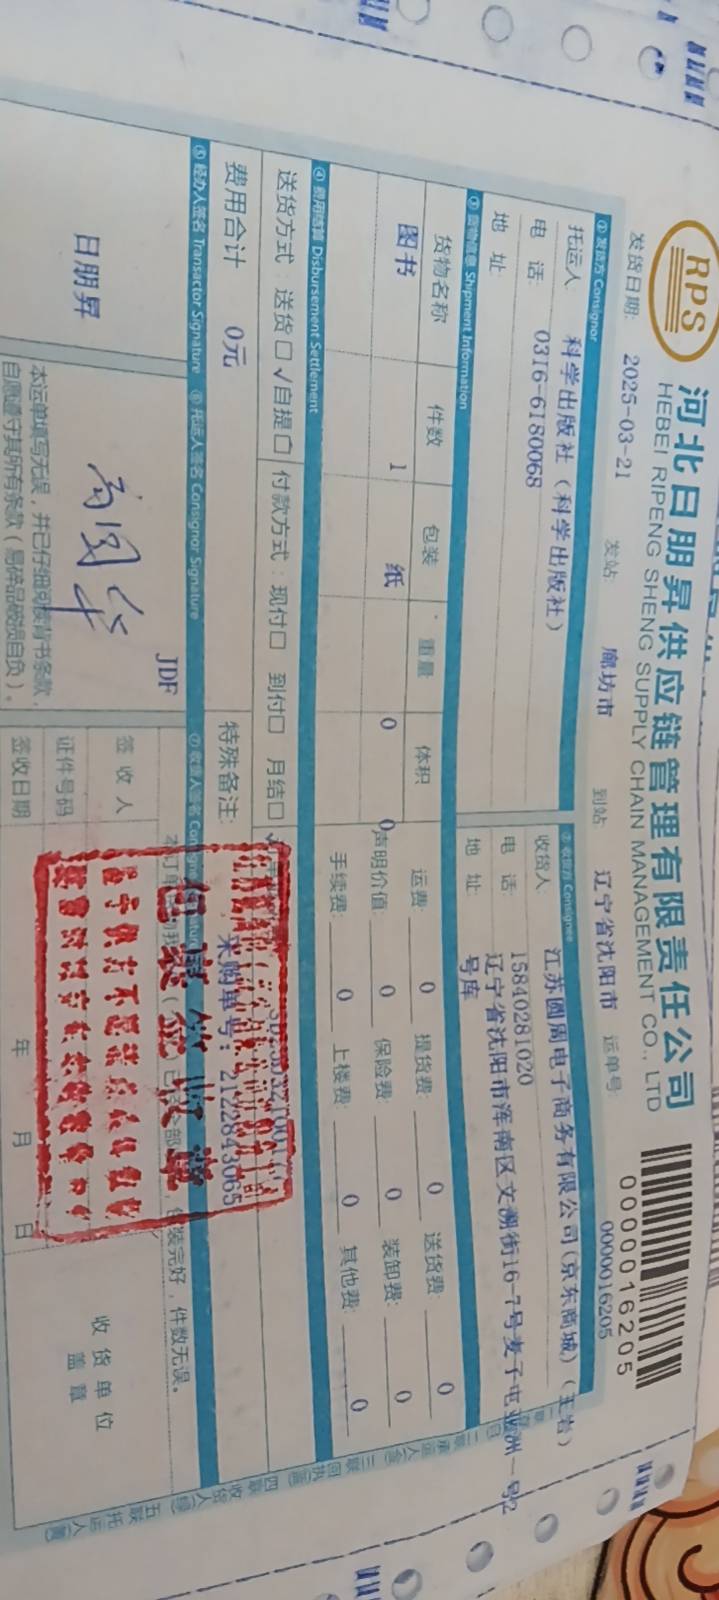 RPS
河北日朋昇供应链管理有限责任公司
HEBEI RIPENG SHENG SUPPLY CHAIN MANAGEMENT CO., LTD
0000016205
发货日期: 2025-03-21 发站: 廊坊市 到站: 辽宁省沈阳市 运单号: 0000016205
① 发货方 Consignor
② 收货方 Consignee
托运人: 科学出版社（科学出版社）
收货人: 江苏圆周电子商务有限公司(京东商城)（王岩）
电 话: 0316-6180068
电 话: 15840281020
地 址:
地 址: 辽宁省沈阳市浑南区文溯街16-7号麦子屯亚洲一号2号库
③ 货物信息 Shipment Information
货物名称 件数 包装 重量 体积
图书 1 纸 0 0
运费: 0 提货费: 0 送货费: 0
声明价值: 0 保险费: 0 装卸费: 0
手续费: 0 上楼费: 0 其他费: 0
④ 费用结算 Disbursement Settlement
送货方式：送货□ √自提□ 付款方式：现付□ 到付□ 月结□
费用合计 0元
特殊备注:
采购单号: 2122843065
⑤ 经办人签名 Transactor Signature ⑥ 托运人签名 Consignor Signature
日朋昇
JDF
本运单填写无误，并已仔细阅读背书条款，
自愿遵守其所有条款（易碎品破损自负）。
包装完好，件数无误。
签收人
证件号码
签收日期 年 月 日
收货单位
盖章